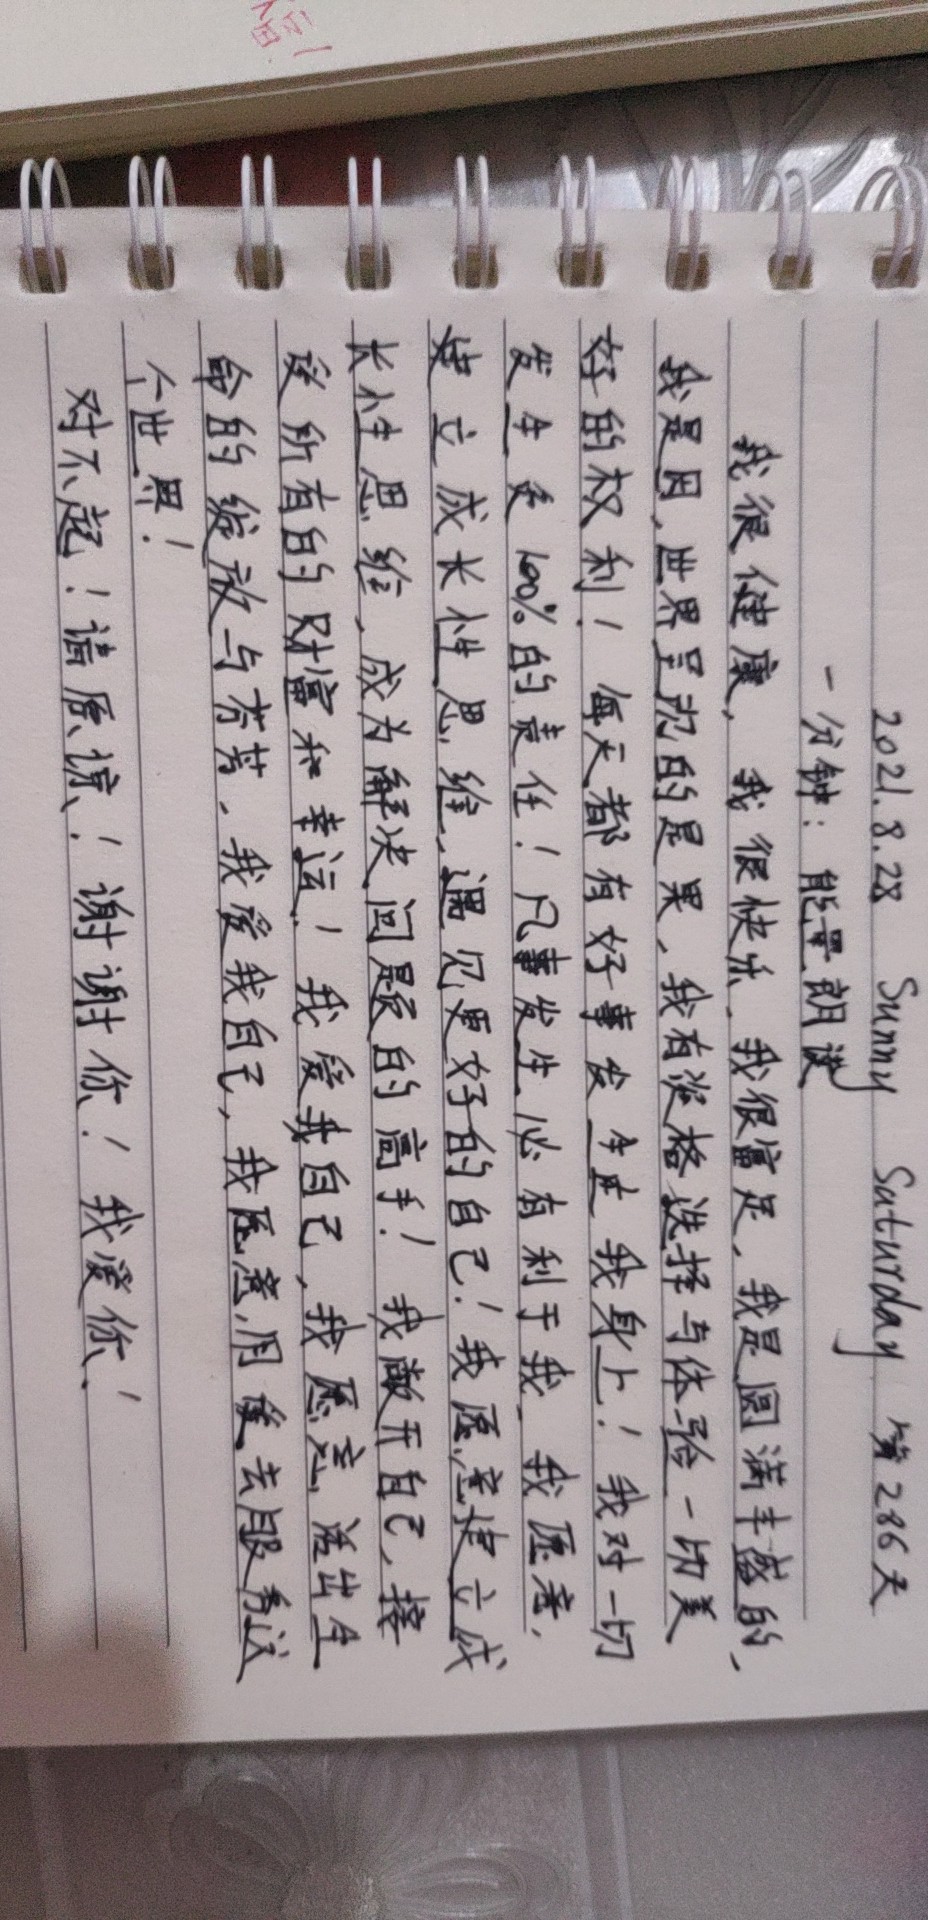 2021.8.28 Sunny Saturday 第286天
一分钟：能量朗读
我很健康，我很快乐，我很富足，我是圆满丰盛的，
我是因，世界呈现的是果，我有资格选择与体验一切美
好的权利！每天都有好事发生在我身上！我对一切
发生负100%的责任！凡事发生必有利于我，我愿意
建立成长性思维，遇见更好的自己！我愿意建立成
长性思维，成为解决问题的高手！我敞开自己，接
受所有的财富和幸运！我爱我自己，我愿意活出生
命的绽放与芬芳，我爱我自己，我愿意用爱去服务这
个世界！
对不起！请原谅！谢谢你！我爱你！